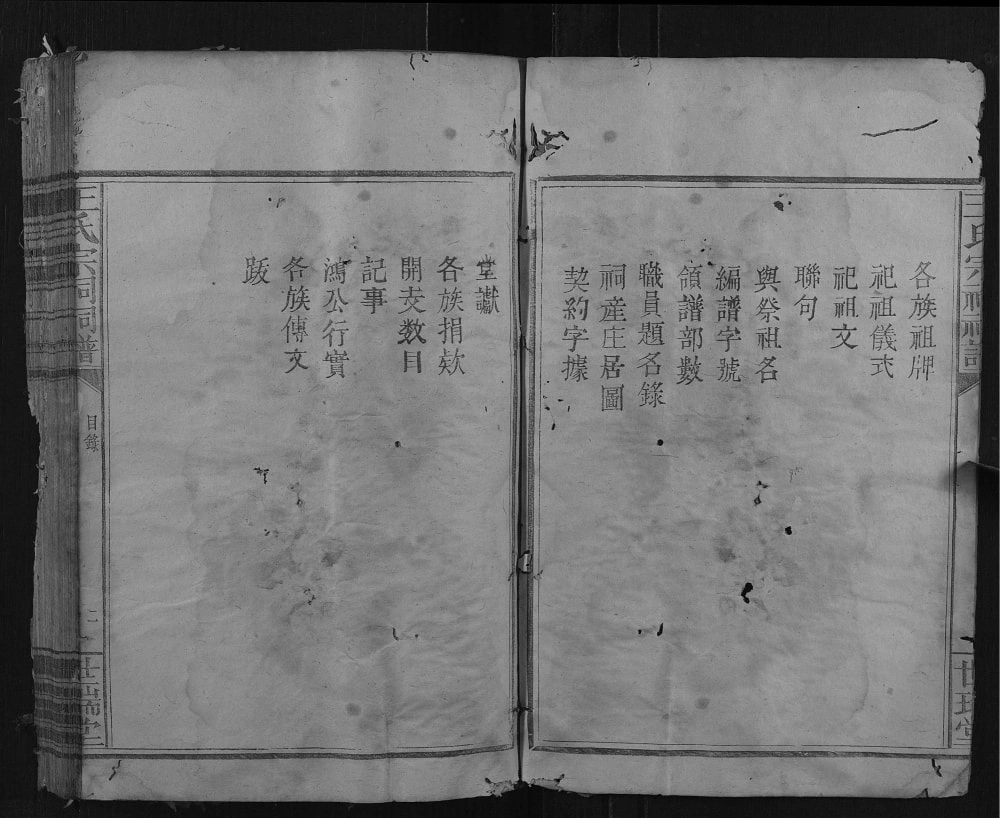 各族祖牌
祀祖儀式
祀祖文
聯句
與祭祖名
編譜字號
領譜部數
職員題名錄
祠產庄居圖
契約字據
堂讞
各族捐欵
開支数目
記事
鴻公行實
各族傳文
跋
王氏宗祠祠譜
目錄
二